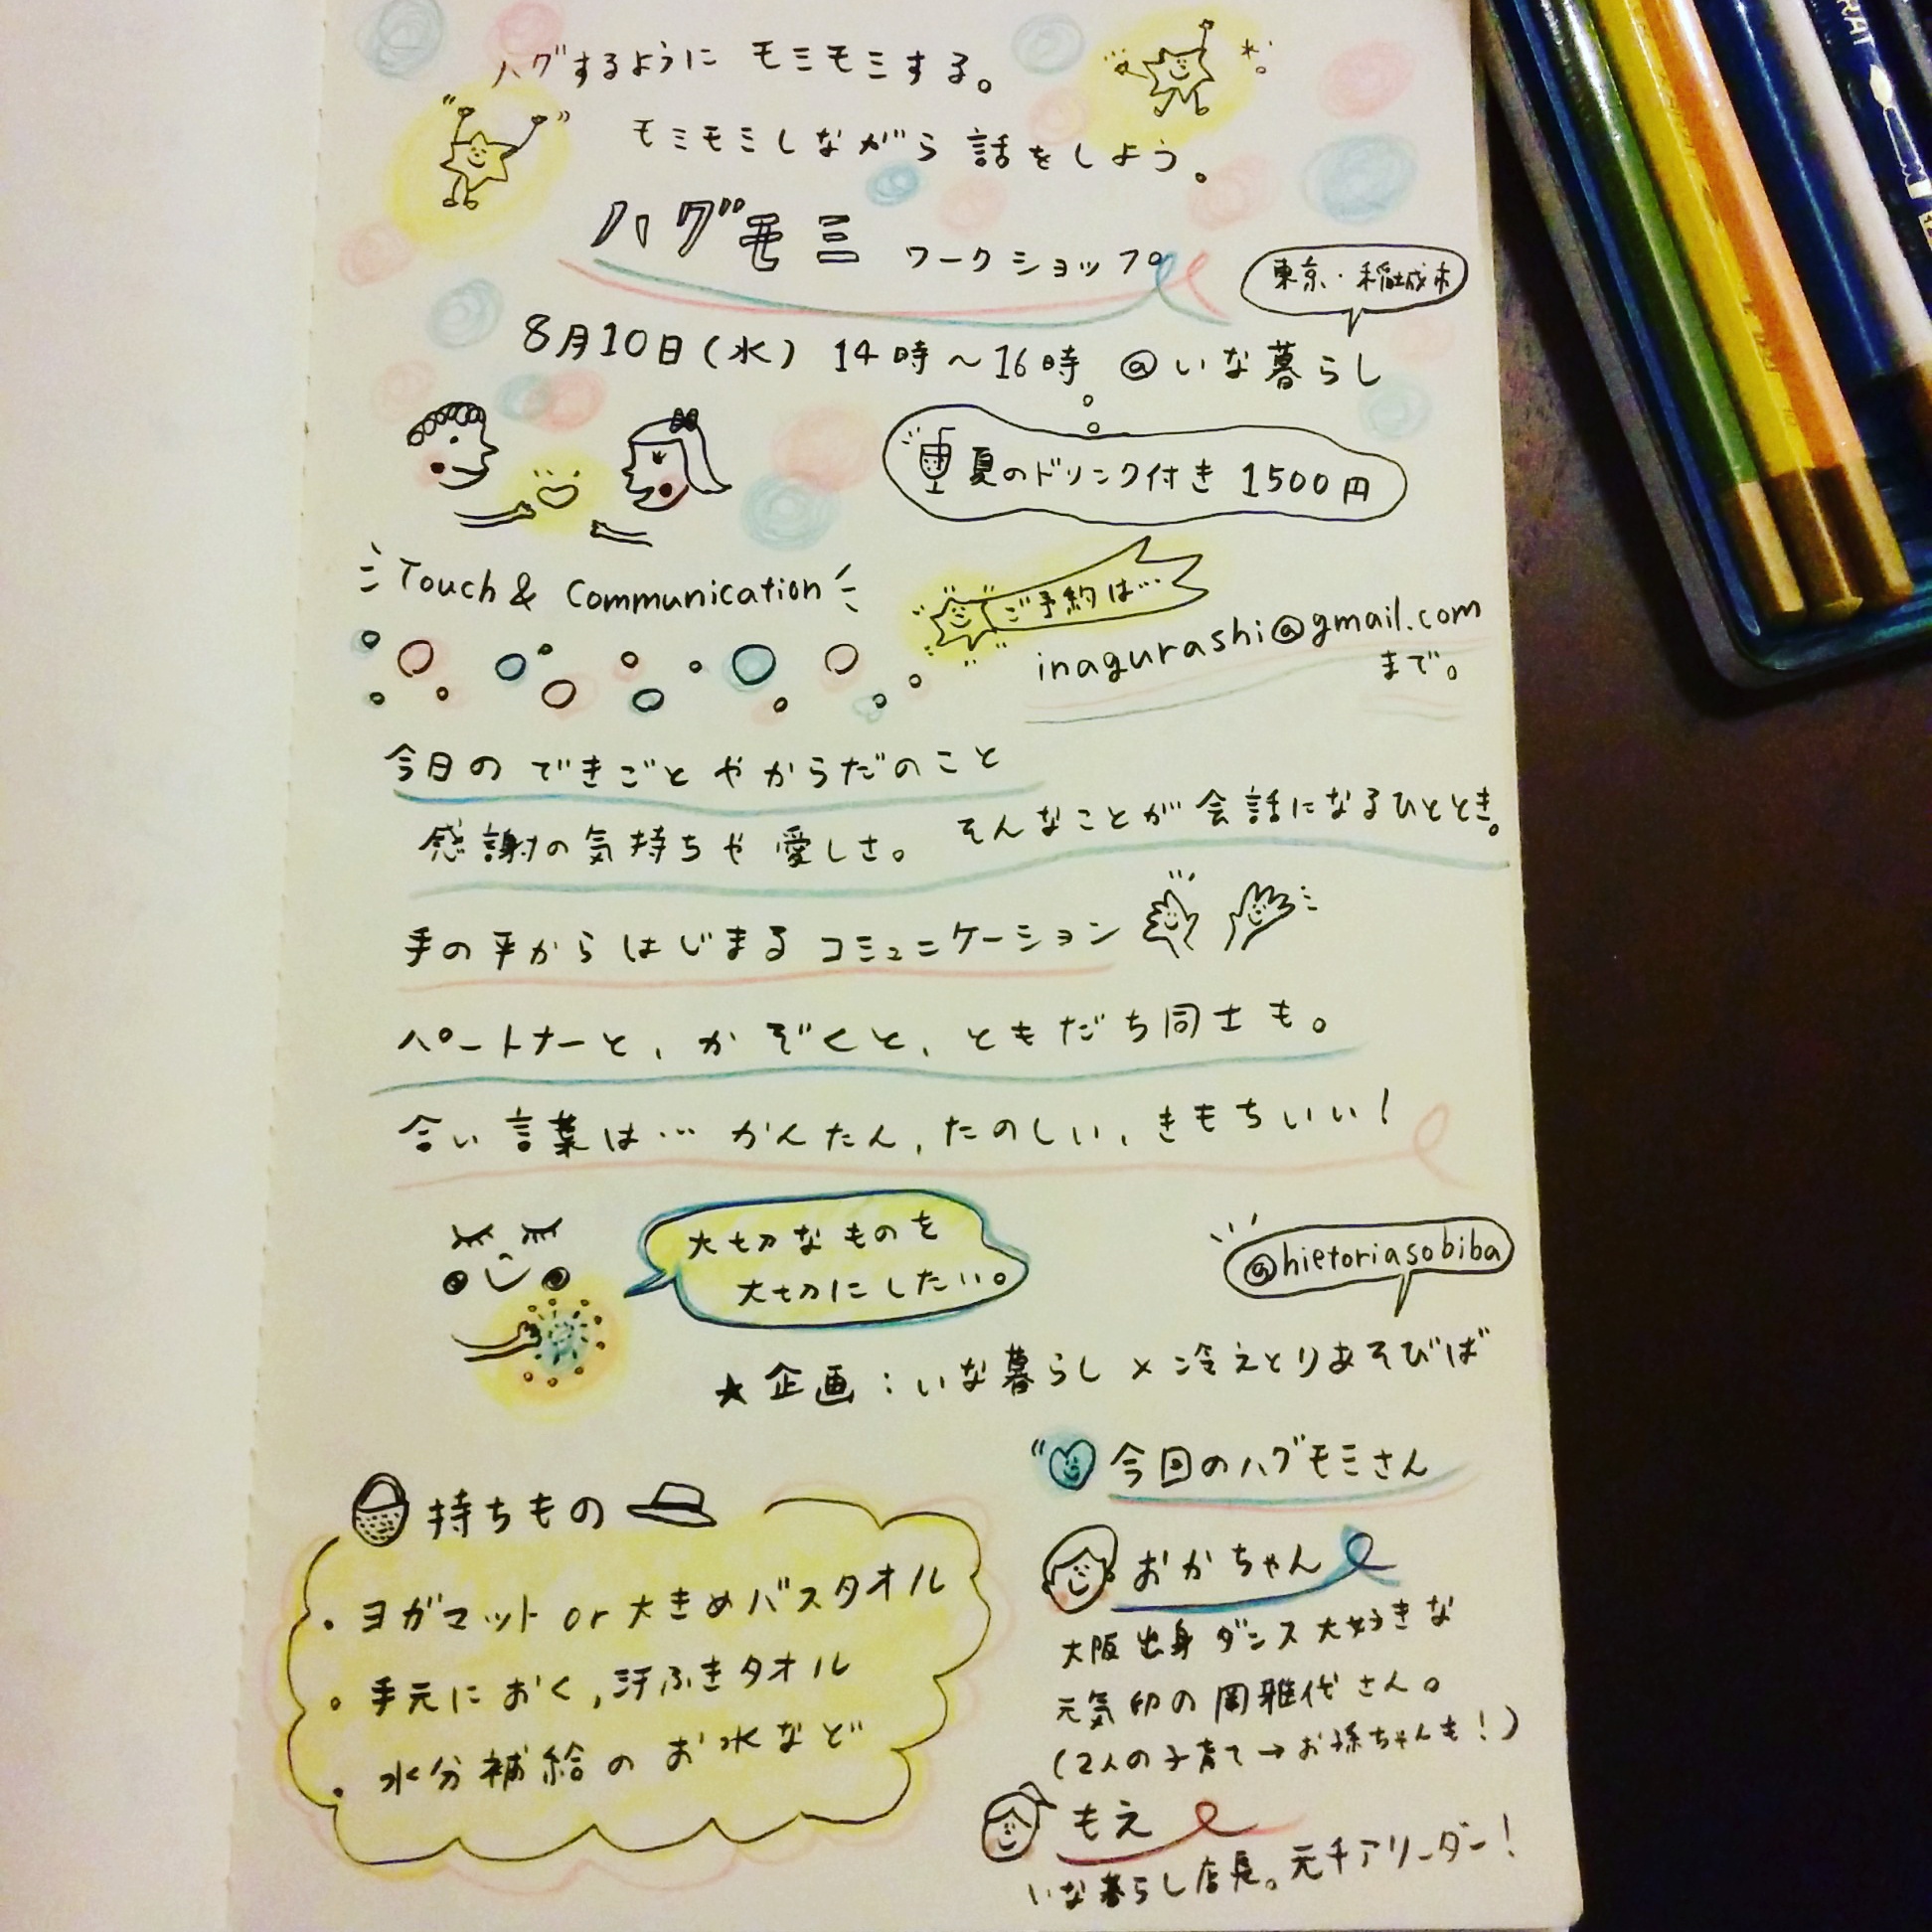 ハグするように モミモミする。
モミモミしながら 話をしよう。
ハグモミ ワークショップ
東京・稲城市
8月10日(水) 14時〜16時 @いな暮らし
夏のドリンク付き 1500円
Touch & Communication
ご予約は…
inagurashi@gmail.com
まで。
今日の できごと や からだのこと
感謝の気持ちや 愛しさ。 そんなことが 会話になるひととき。
手の平から はじまる コミュニケーション
パートナーと、かぞくと、ともだち同士も。
合い言葉は… かんたん、たのしい、きもちいい!
大切なものを
大切にしたい。
@hietoriasobiba
★企画:いな暮らし×冷えとりあそびば
今回のハグモミさん
持ちもの
・ヨガマット or 大きめバスタオル
・手元に おく、汗ふきタオル
・水分補給の お水など
おかちゃん
大阪出身 ダンス大好きな
元気印の 岡雅代さん。
(2人の子育て→お孫ちゃんも!)
もえ
いな暮らし店長。元チアリーダー!